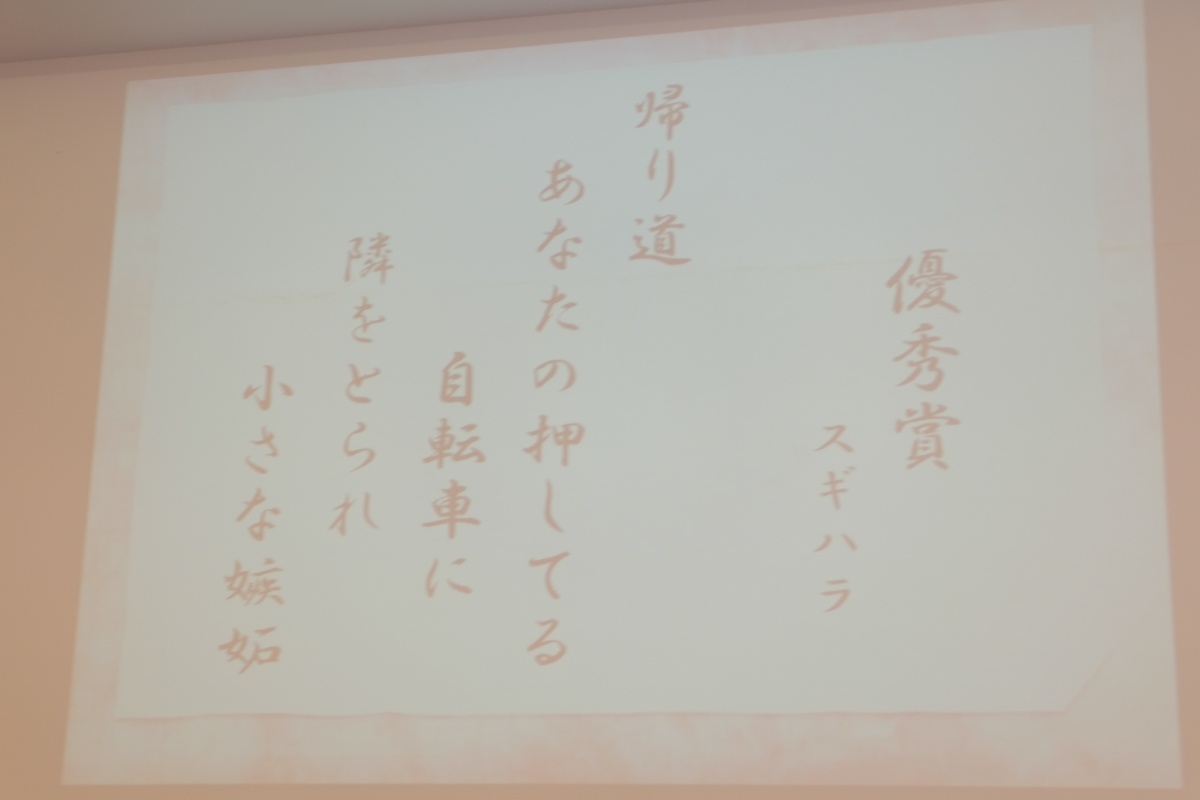 優秀賞
スギハラ
帰り道
あなたの押してる
自転車に
隣をとられ
小さな嫉妬